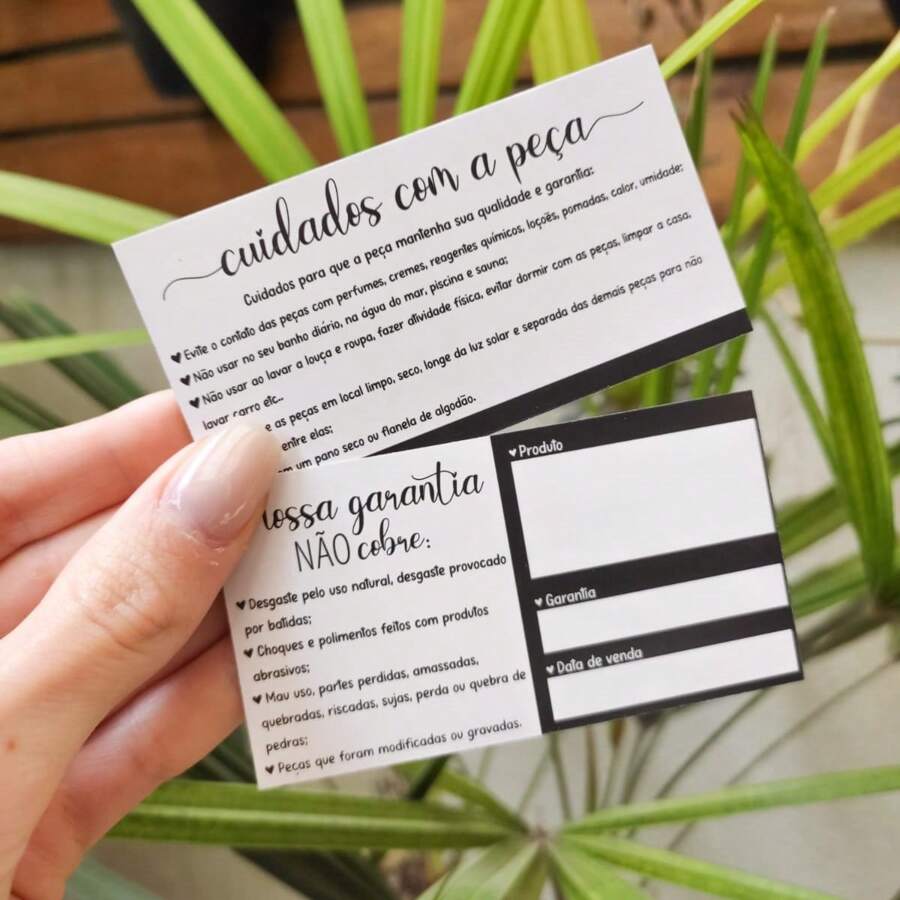 cuidados com a peça
Cuidados para que a peça mantenha sua qualidade e garantia:
Evite o contato das peças com perfumes, cremes, reagentes químicos, loções, pomadas, calor, umidade;
Não usar no seu banho diário, na água do mar, piscina e sauna;
Não usar ao lavar a louça e roupa, fazer atividade física, evitar dormir com as peças, limpar a casa,
lavar carro etc..
e as peças em local limpo, seco, longe da luz solar e separada das demais peças para não
entre elas;
um pano seco ou flanela de algodão.
nossa garantia
NÃO cobre:
Desgaste pelo uso natural, desgaste provocado
por batidas;
Choques e polimentos feitos com produtos
abrasivos;
Mau uso, partes perdidas, amassadas,
quebradas, riscadas, sujas, perda ou quebra de
pedras;
Peças que foram modificadas ou gravadas.
Produto
Garantia
Data de venda